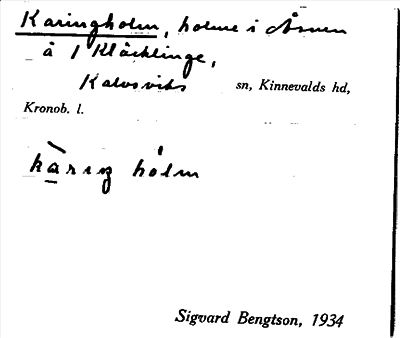 Karingholm, holme i Åsnen
å 1 Kläcklinge,
Kalvsviks sn, Kinnevalds hd,
Kronob. l.
kàrıŋ hólm
Sigvard Bengtson, 1934